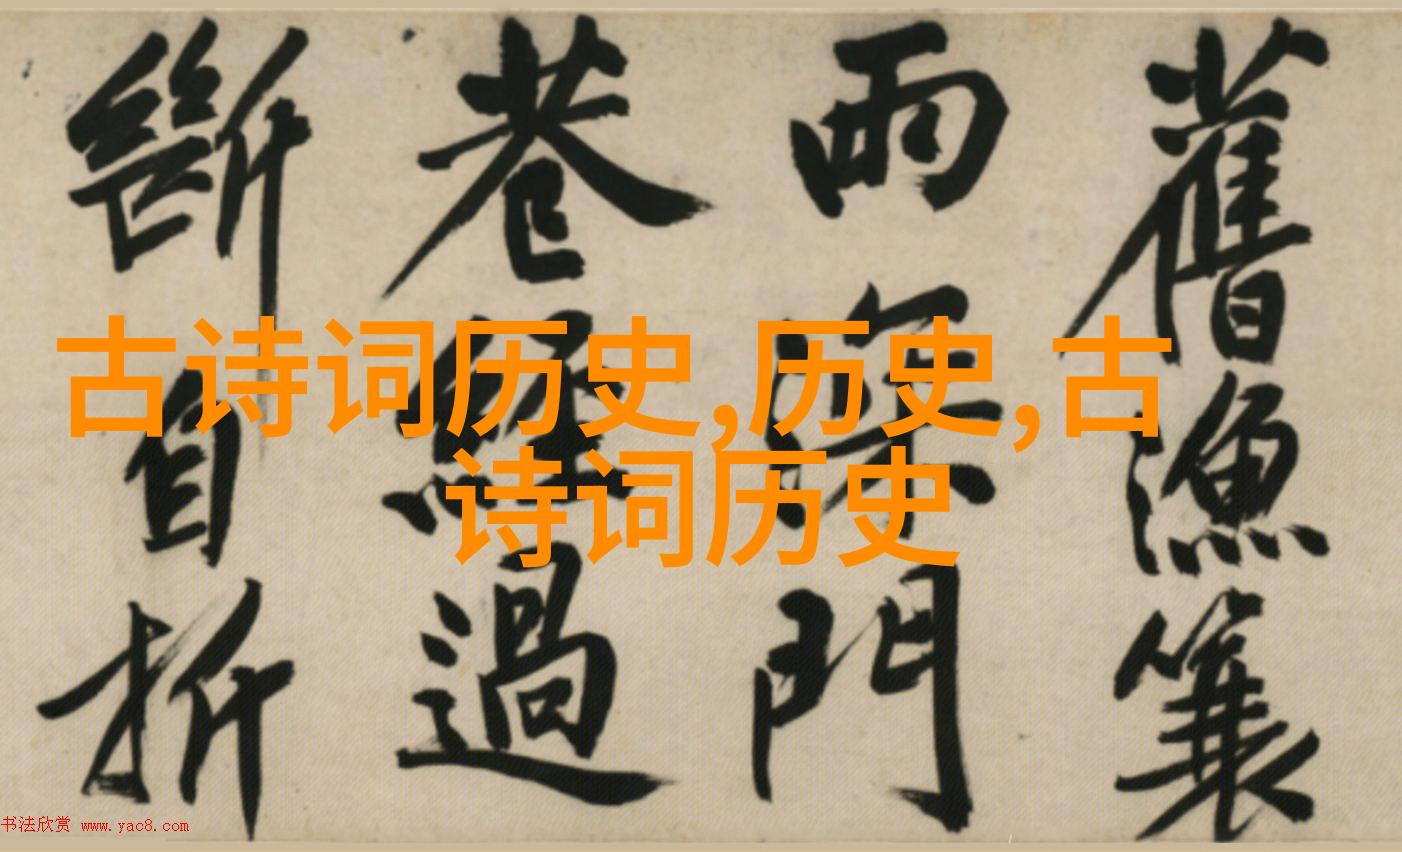 舊漁簑
雨深門
巷經過
斷自折
古诗词历史,历史,古
诗词历史
书法欣赏 www.yac8.com